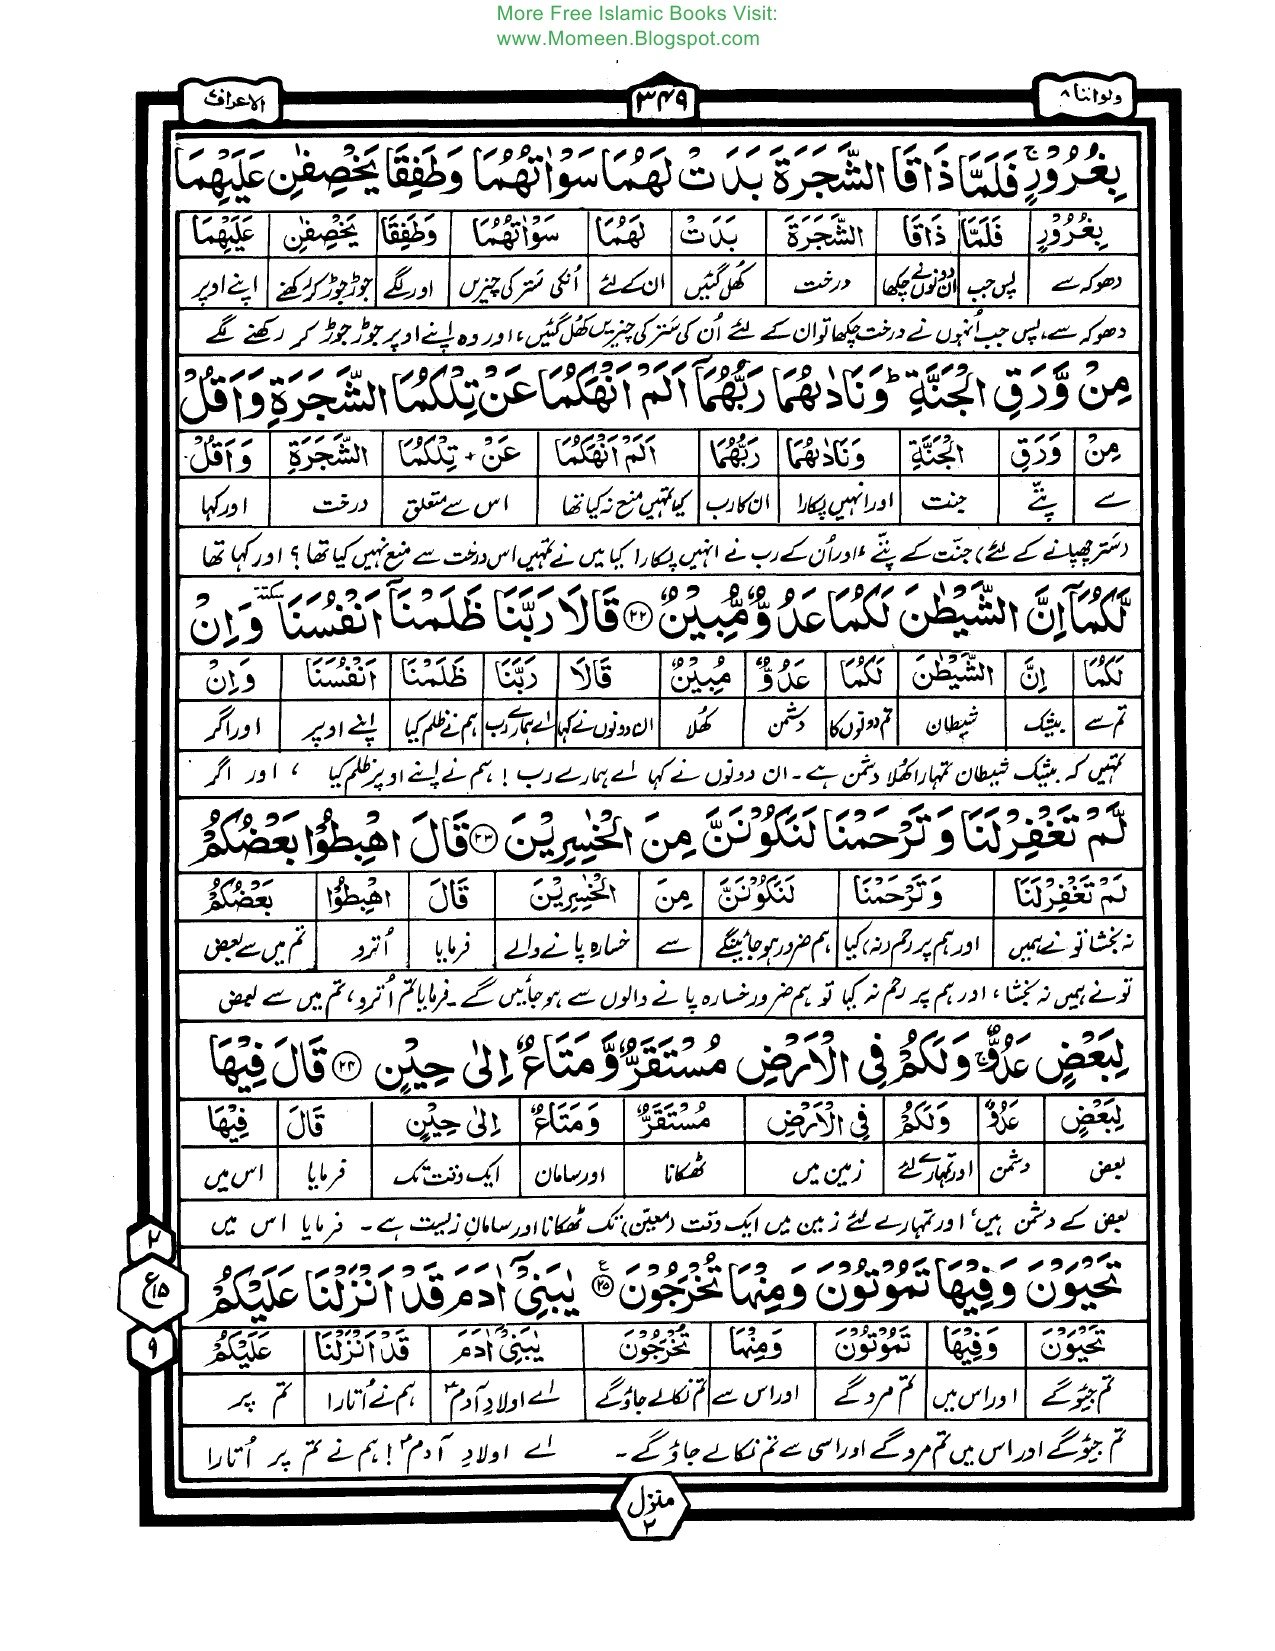 More Free Islamic Books Visit:
www.Momeen.Blogspot.com
ولواننا ۸
۳۴۹
الاعراف ۷
بِغُرُوْرٍ ۚ فَلَمَّا ذَاقَا الشَّجَرَةَ بَدَتْ لَهُمَا سَوْاٰتُهُمَا وَطَفِقَا يَخْصِفٰنِ عَلَيْهِمَا
بِغُرُوْرٍ فَلَمَّا ذَاقَا الشَّجَرَةَ بَدَتْ لَهُمَا سَوْاٰتُهُمَا وَطَفِقَا يَخْصِفٰنِ عَلَيْهِمَا
دھوکہ سے پس جب ان دونوں نے چکھا درخت کھل گئیں ان کے لئے اُنکی ستر کی چیزیں اور لگے جوڑ جوڑ کر رکھنے اپنے اوپر
دھوکہ سے، پس جب اُنہوں نے درخت چکھا تو ان کے لئے اُن کی ستر کی چیزیں کھل گئیں، اور وہ اپنے اوپر جوڑ جوڑ کر رکھنے لگے
مِنْ وَّرَقِ الْجَنَّةِ ؕ وَنَادٰىهُمَا رَبُّهُمَآ اَلَمْ اَنْهَكُمَا عَنْ تِلْكُمَا الشَّجَرَةِ وَاَقُلْ
مِنْ وَرَقِ الْجَنَّةِ وَنَادٰىهُمَا رَبُّهُمَا اَلَمْ اَنْهَكُمَا عَنْ + تِلْكُمَا الشَّجَرَةِ وَاَقُلْ
سے پتّے جنت اور انہیں پکارا ان کا رب کیا تمہیں منع نہ کیا تھا اس سے متعلق درخت اور کہا
(ستر چھپانے کے لئے) جنّت کے پتّے، اور اُن کے رب نے انہیں پکارا کیا میں نے تمہیں اس درخت سے منع نہیں کیا تھا؟ اور کہا تھا
لَّكُمَآ اِنَّ الشَّيْطٰنَ لَكُمَا عَدُوٌّ مُّبِيْنٌ ۲۲ قَالَا رَبَّنَا ظَلَمْنَآ اَنْفُسَنَا سكتة وَاِنْ
لَكُمَا اِنَّ الشَّيْطٰنَ لَكُمَا عَدُوٌّ مُبِيْنٌ قَالَا رَبَّنَا ظَلَمْنَا اَنْفُسَنَا وَاِنْ
تم سے بیشک شیطان تم دونوں کا دشمن کھُلا ان دونوں نے کہا اے ہمارے رب ہم نے ظلم کیا اپنے اوپر اور اگر
تمہیں کہ بیشک شیطان تمہارا کھُلا دشمن ہے۔ ان دونوں نے کہا اے ہمارے رب! ہم نے اپنے اوپر ظلم کیا ، اور اگر
لَّمْ تَغْفِرْلَنَا وَتَرْحَمْنَا لَنَكُوْنَنَّ مِنَ الْخٰسِرِيْنَ ۲۳ قَالَ اهْبِطُوْا بَعْضُكُمْ
لَمْ تَغْفِرْلَنَا وَتَرْحَمْنَا لَنَكُوْنَنَّ مِنَ الْخٰسِرِيْنَ قَالَ اهْبِطُوْا بَعْضُكُمْ
نہ بخشا تو نے ہمیں اور ہم پر رحم (نہ) کیا ہم ضرور ہو جائینگے سے خسارہ پانے والے فرمایا اُترو تم میں سے بعض
تو نے ہمیں نہ بخشا، اور ہم پر رحم نہ کیا تو ہم ضرور خسارہ پانے والوں سے ہو جائیں گے۔ فرمایا تم اُترو، تم میں سے بعض
لِبَعْضٍ عَدُوٌّ ۚ وَلَكُمْ فِى الْاَرْضِ مُسْتَقَرٌّ وَّمَتَاعٌ اِلٰى حِيْنٍ ۲۴ قَالَ فِيْهَا
لِبَعْضٍ عَدُوٌّ وَلَكُمْ فِى الْاَرْضِ مُسْتَقَرٌّ وَمَتَاعٌ اِلٰى حِيْنٍ قَالَ فِيْهَا
بعض دشمن اور تمہارے لئے زمین میں ٹھکانا اور سامان ایک وقت تک فرمایا اس میں
بعض کے دشمن ہیں، اور تمہارے لئے زمین میں ایک وقت (معیّن) تک ٹھکانا اور سامانِ زیست ہے۔ فرمایا اس میں
تَحْيَوْنَ وَفِيْهَا تَمُوْتُوْنَ وَمِنْهَا تُخْرَجُوْنَ ۲۵ ع يٰبَنِىْٓ اٰدَمَ قَدْ اَنْزَلْنَا عَلَيْكُمْ
تَحْيَوْنَ وَفِيْهَا تَمُوْتُوْنَ وَمِنْهَا تُخْرَجُوْنَ يٰبَنِىْٓ اٰدَمَ قَدْ اَنْزَلْنَا عَلَيْكُمْ
تم جیوگے اور اس میں تم مروگے اور اس سے تم نکالے جاؤگے اے اولادِ آدمؑ ہم نے اُتارا تم پر
تم جیوگے اور اس میں تم مروگے اور اسی سے تم نکالے جاؤگے۔ اے اولادِ آدمؑ! ہم نے تم پر اُتارا
۲
ع ۱۵
۹
منزل ۲